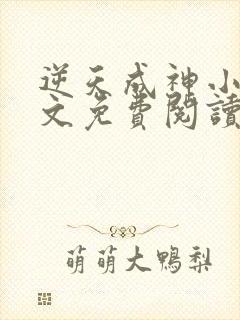 逆天成神小
文免費閱讀
萌萌大鴨梨